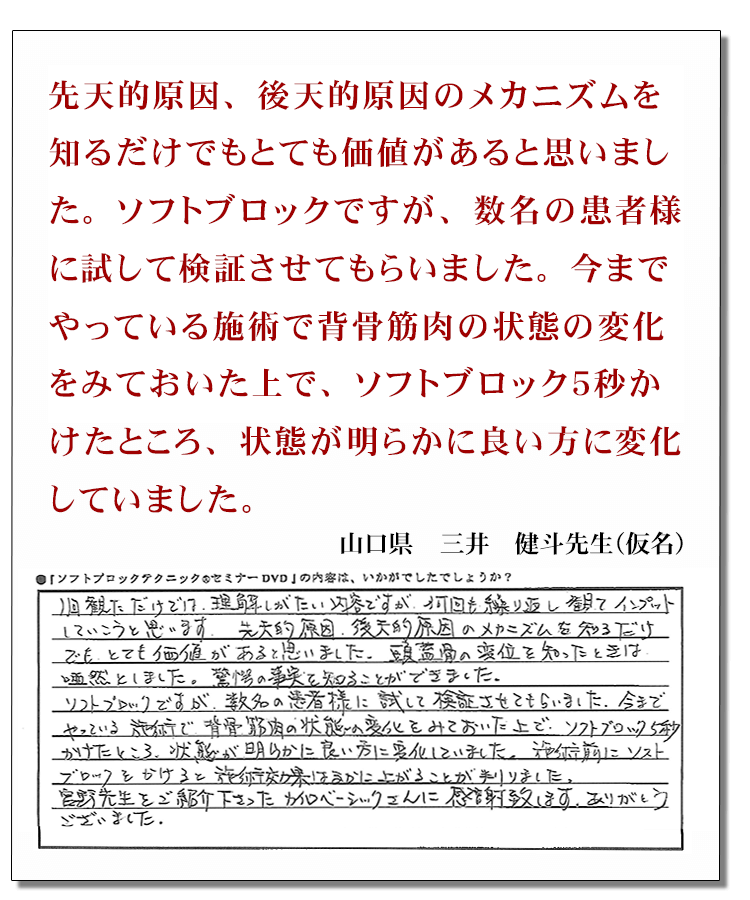 先天的原因、後天的原因のメカニズムを
知るだけでもとても価値があると思いまし
た。ソフトブロックですが、数名の患者様
に試して検証させてもらいました。今まで
やっている施術で背骨筋肉の状態の変化
をみておいた上で、ソフトブロック5秒か
けたところ、状態が明らかに良い方に変化
していました。
山口県 三井 健斗先生(仮名)
●『ソフトブロックテクニック®セミナーDVD』の内容は、いかがでしたでしょうか?
1回観ただけでは、理解しがたい内容ですが、何回も繰り返し観てインプット
していこうと思います。先天的原因、後天的原因のメカニズムを知るだけ
でも、とても価値があると思いました。頭蓋骨の変位を知ったときは
唖然としました。驚愕の事実を知ることができました。
ソフトブロックですが、数名の患者様に試して検証させてもらいました。今まで
やっている施術で背骨筋肉の状態の変化をみておいた上で、ソフトブロック5秒
かけたところ、状態が明らかに良い方に変化していました。施術前にソフト
ブロックをかけると施術効果はるかに上がることが判りました。
宮野先生をご紹介下さったカイロベーシックさんに感謝致します。ありがとう
ございました。